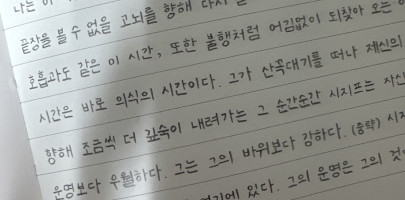 나는 이
끝장을 볼 수 없을 고뇌를 향해 다시
호흡과도 같은 이 시간, 또한 불행처럼 어김없이 되찾아 오는
시간은 바로 의식의 시간이다. 그가 산꼭대기를 떠나 제신의
향해 조금씩 더 깊숙이 내려가는 그 순간순간 시지프는 자신
운명보다 우월하다. 그는 그의 바위보다 강하다. (중략) 시지
있다. 그의 운명은 그의 것